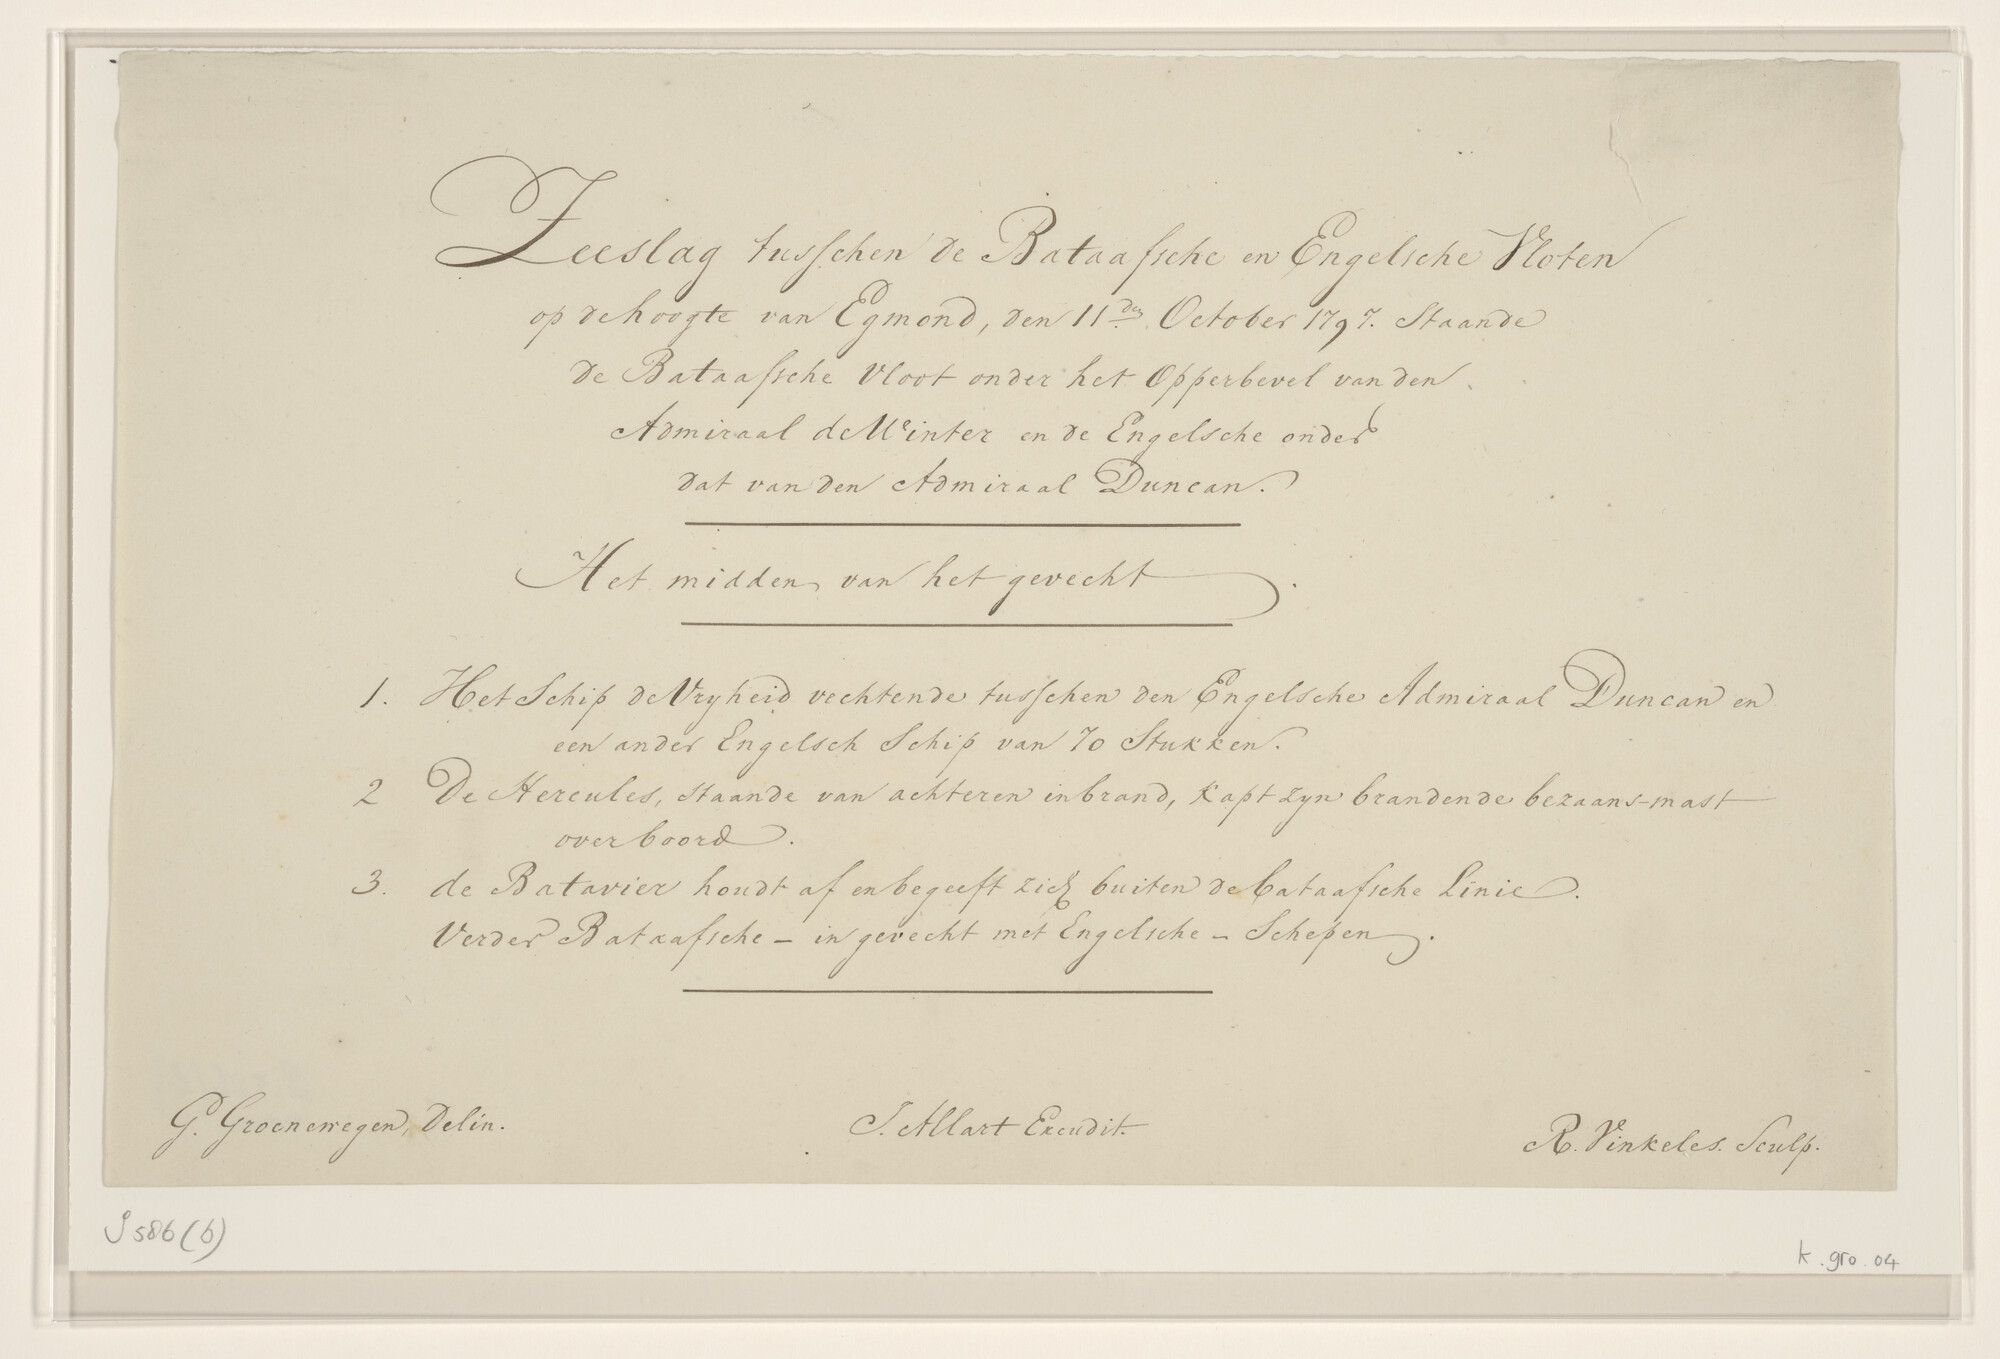 Zeeslag tusschen de Bataafsche en Engelsche Vloten
op de hoogte van Egmond, den 11den October 1797. Staande
de Bataafsche Vloot onder het Opperbevel van den
Admiraal de Winter en de Engelsche onder
dat van den Admiraal Duncan.
Het midden van het gevecht.
1. Het Schip de Vryheid vechtende tusschen den Engelsche Admiraal Duncan en
een ander Engelsch Schip van 70 Stukken.
2 De Hercules, staande van achteren in brand, kapt zyn brandende bezaans-mast
over boord.
3. de Batavier houdt af en begeeft zich buiten de bataafsche Linie.
Verder Bataafsche - in gevecht met Engelsche - Schepen.
G. Groenewegen, Delin.
J. Allart Excudit.
R. Vinkeles. Sculp.
S 586 (b)
k. gro. 04